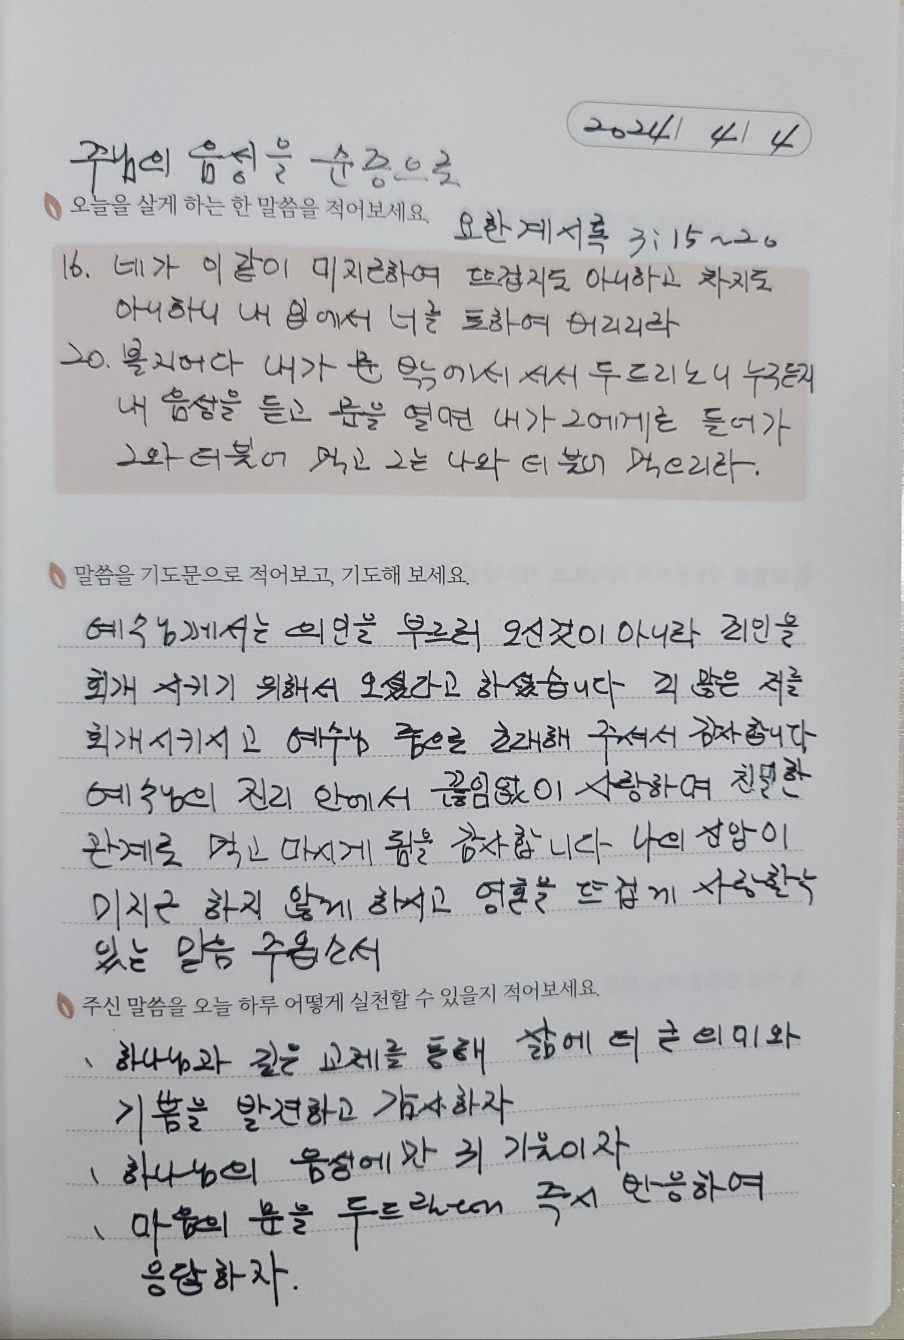 2024/ 4/ 4
주님의 음성을 순종으로
오늘을 살게 하는 한 말씀을 적어보세요.
요한계시록 3:15~20
16. 네가 이같이 미지근하여 뜨겁지도 아니하고 차지도
아니하니 내 입에서 너를 토하여 버리리라
20. 볼지어다 내가 문 밖에서 서서 두드리노니 누구든지
내 음성을 듣고 문을 열면 내가 그에게로 들어가
그와 더불어 먹고 그는 나와 더불어 먹으리라.
말씀을 기도문으로 적어보고, 기도해 보세요.
예수님께서는 의인을 부르러 오신것이 아니라 죄인을
회개 시키기 위해서 오셨다고 하셨습니다 죄 많은 저를
회개시키시고 예수님 품으로 초대해 주셔서 감사합니다
예수님의 진리 안에서 끊임없이 사랑하며 친밀한
관계로 먹고 마시게 됨을 감사합니다 나의 신앙이
미지근 하지 않게 하시고 영혼을 뜨겁게 사랑할수
있는 믿음 주옵소서
주신 말씀을 오늘 하루 어떻게 실천할 수 있을지 적어보세요.
、하나님과 깊은 교제를 통해 삶에 더 큰 의미와
기쁨을 발견하고 감사하자
、하나님의 음성에만 귀 기울이자
、마음의 문을 두드릴때 즉시 반응하여
응답하자.